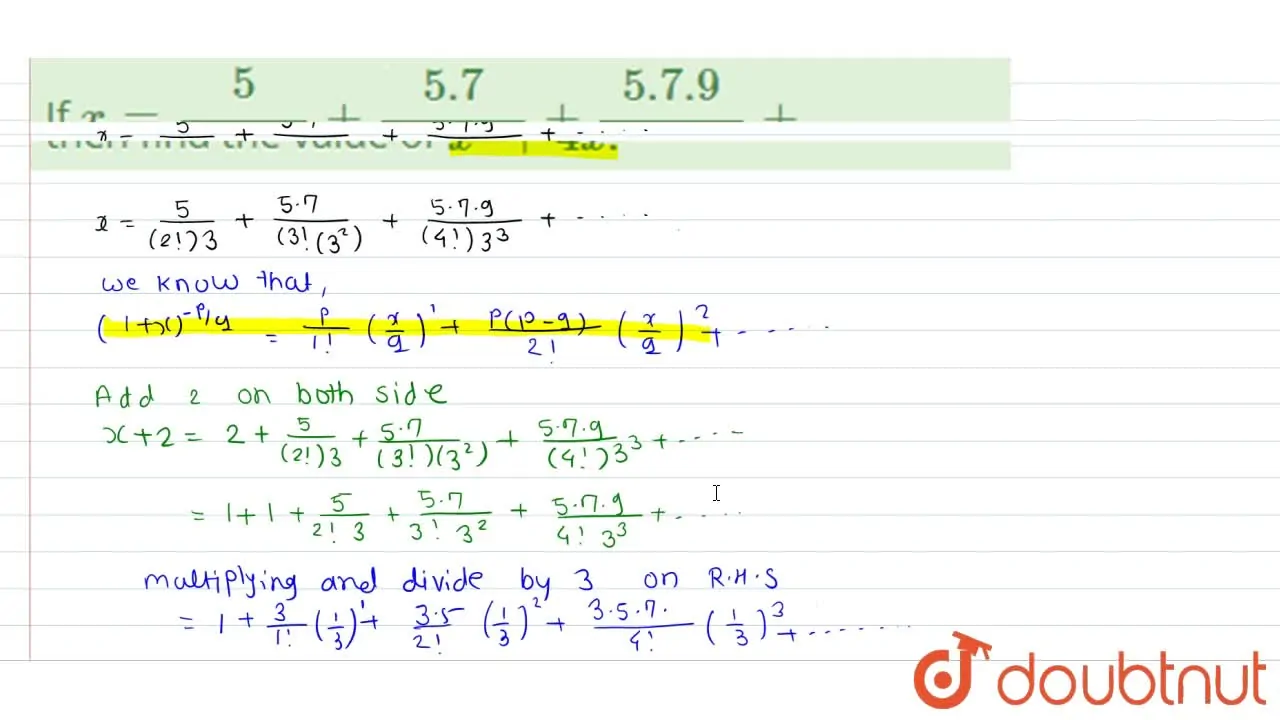 If x = 5 + 5.7 + 5.7.9 +
x = 5 + 5·7 + 5·7·9 + ......
then find the value of x + 4x.
x = 5/(2!)3 + 5·7/(3!(3²) + 5·7·9/(4!)3³ + ......
we know that,
(1+x)^-P/q = P/1! (x/q)¹ + P(P-q)/2! (x/q)² + ......
Add 2 on both side
x+2 = 2 + 5/(2!)3 + 5·7/(3!)(3²) + 5·7·9/(4!)3³ + .....
= 1+1 + 5/2! 3 + 5·7/3! 3² + 5·7·9/4! 3³ + .....
multiplying and divide by 3 on R.H.S
= 1 + 3/1! (1/3)¹ + 3·5/2! (1/3)² + 3·5·7·/4! (1/3)³ + .......
doubtnut